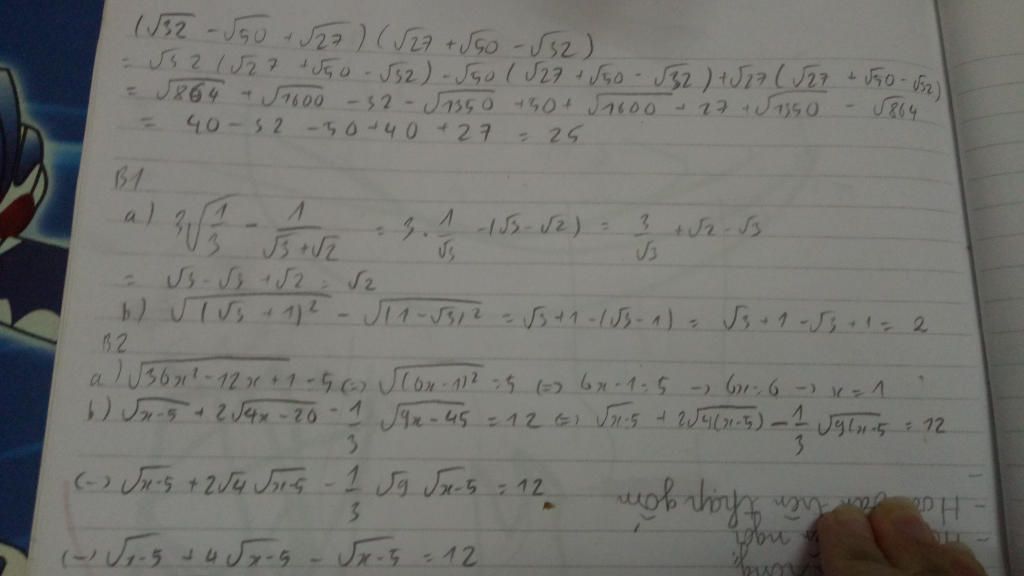 (√32 - √50 + √27)(√27 + √50 - √32)
= √32(√27 + √50 - √32) - √50(√27 + √50 - √32) + √27(√27 + √50 - √32)
= √864 + √1600 - 32 - √1350 + 50 + √1600 + 27 + √1350 - √864
= 40 - 32 - 50 + 40 + 27 = 25
B1
a) 3√(1/3) - 1/(√3 + √2) = 3 . 1/√3 - (√3 - √2) = 3/√3 + √2 - √3
= √3 - √3 + √2 = √2
b) √((√3 + 1)²) - √((1 - √3)²) = √3 + 1 - (√3 - 1) = √3 + 1 - √3 + 1 = 2
B2
a) √(36x² - 12x + 1) = 5 (=) √((6x - 1)²) = 5 (=) 6x - 1 = 5 -> 6x = 6 -> x = 1
b) √(x-5) + 2√(4x-20) - 1/3 √(9x-45) = 12 (=) √(x-5) + 2√(4(x-5)) - 1/3 √(9(x-5) = 12
(=) √(x-5) + 2√4 √(x-5) - 1/3 √9 √(x-5) = 12
(=) √(x-5) + 4√(x-5) - √(x-5) = 12
trên tháp gồm